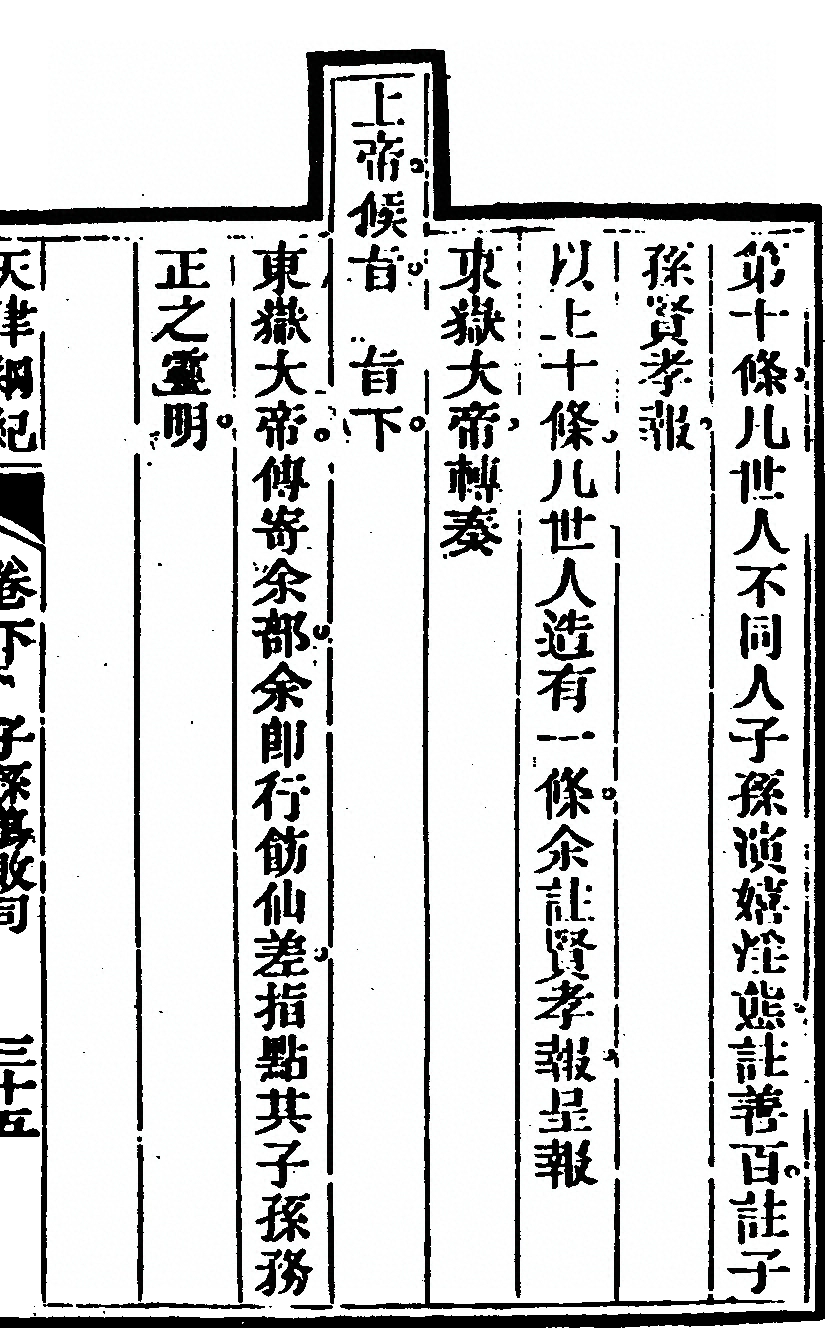 第十條凡世人不同人子孫演嬉淫態註善百註子
孫賢孝報
以上十條凡世人造有一條余註賢孝報呈報
東嶽大帝轉奏
上帝候旨 旨下
東嶽大帝傳寄余部余即行飭仙差指點其子孫務
正之靈明
天律綱紀 卷下 子孫賢敗司 三十五